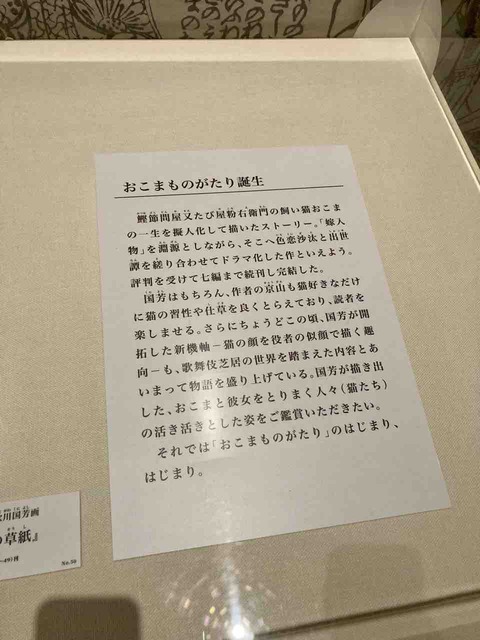 おこまものがたり誕生
鰹節問屋又たび屋粉右衛門の飼い猫おこま
の一生を擬人化して描いたストーリー。「嫁入
物」を淵源としながら、そこへ色恋沙汰と出世
譚を縒り合わせてドラマ化した作といえよう。
評判を受けて七編まで続刊し完結した。
国芳はもちろん、作者の京山も猫好きなだけ
に猫の習性や仕草を良くとらえており、読者を
楽しませる。さらにちょうどこの頃、国芳が開
拓した新機軸－猫の顔を役者の似顔で描く趣
向－も、歌舞伎芝居の世界を踏まえた内容とあ
いまって物語を盛り上げている。国芳が描き出
した、おこまと彼女をとりまく人々（猫たち）
の活き活きとした姿をご鑑賞いただきたい。
それでは「おこまものがたり」のはじまり、
はじまり。
川国芳画
草紙』
49）刊
No.58